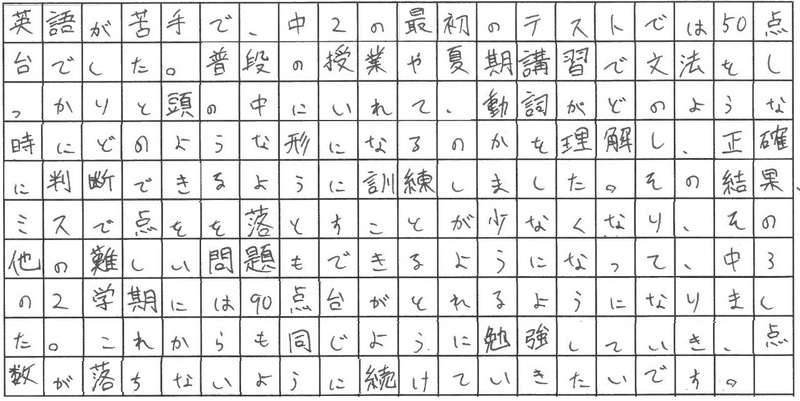 英語が苦手で、中2の最初のテストでは50点
台でした。普段の授業や夏期講習で文法をし
っかりと頭の中にいれて、動詞がどのような
時にどのような形になるのかを理解し、正確
に判断できるように訓練しました。その結果、
ミスで点をを落とすことが少なくなり、その
他の難しい問題もできるようになって、中3
の2学期には90点台がとれるようになりまし
た。これからも同じように勉強していき、点
数が落ちないように続けていきたいです。